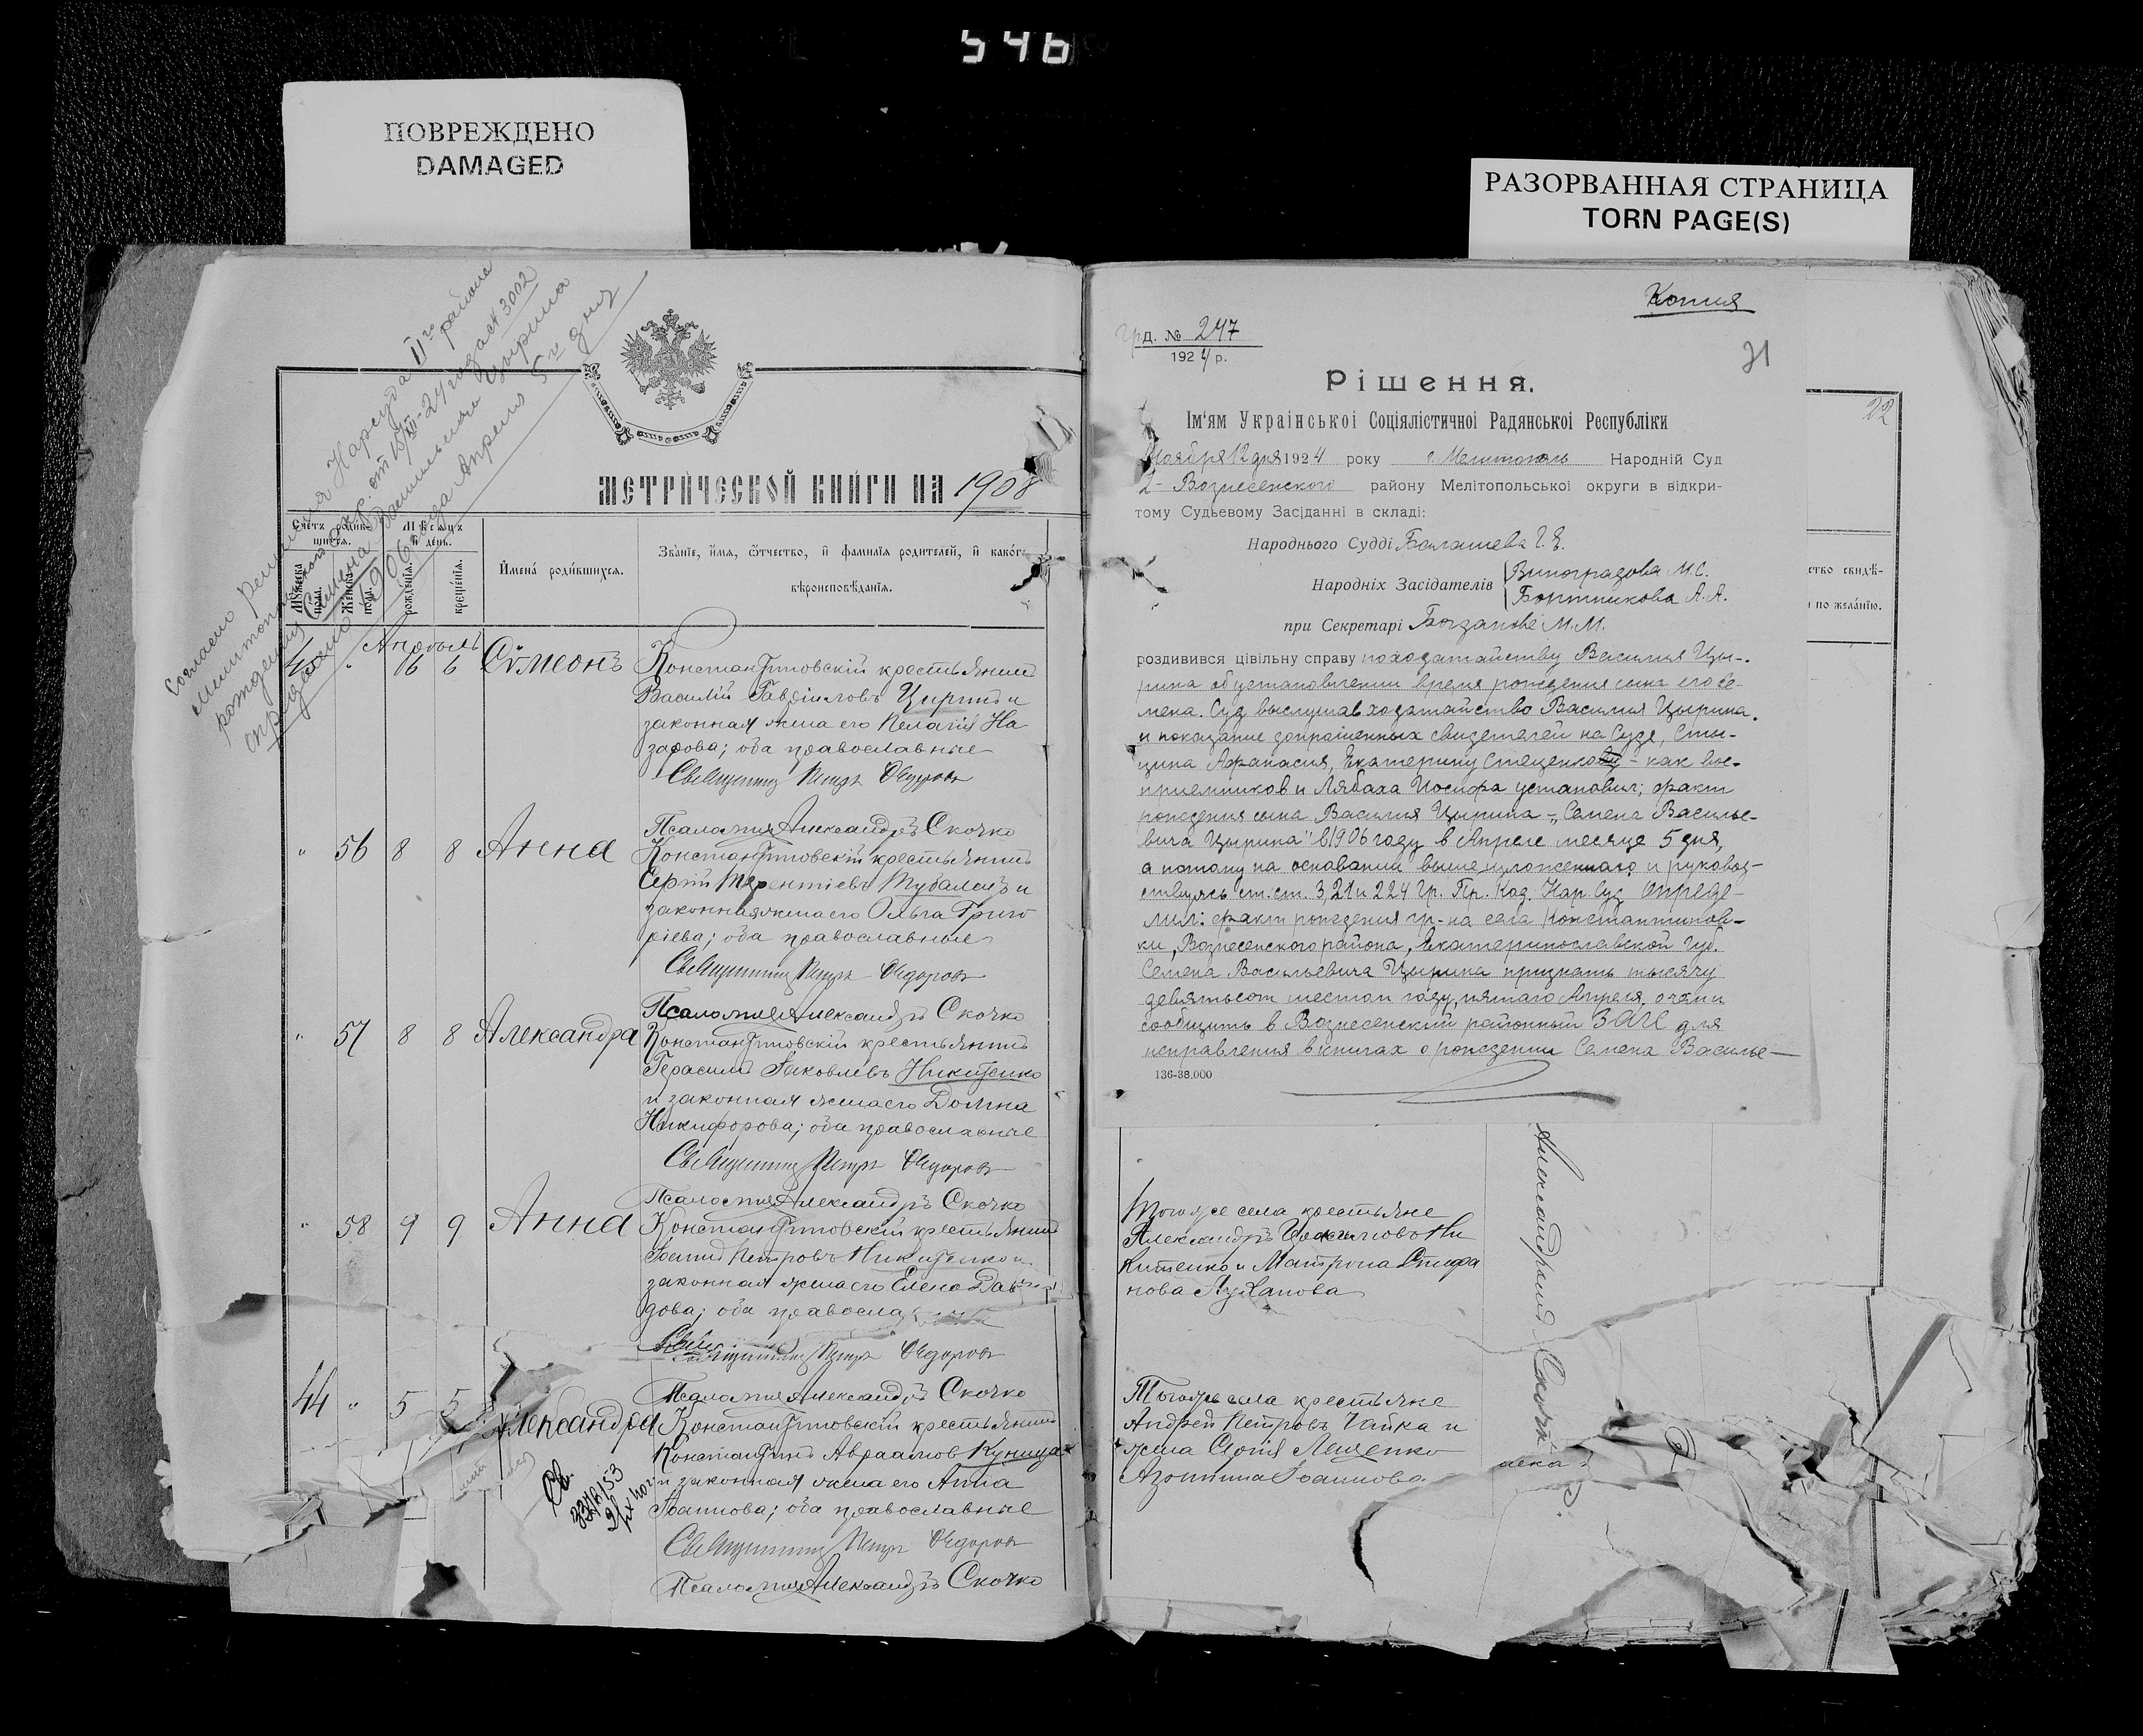 546
ПОВРЕЖДЕНО
DAMAGED
РАЗОРВАННАЯ СТРАНИЦА
TORN PAGE(S)
Согласно решения Нарсуда II го района
Мелитопольского Окр. от 12/XI-24 года за № 3002
рождение Семена Васильевича Цырина
определено 1906 года Апреля 5 го дня
МЕТРИЧЕСКОЙ КНИГИ НА 1908
Счетъ родив-
шихся.
Мѣсяцъ
и день.
Мужеска
пола.
Женска
пола.
рожденія.
крещенія.
Имена родившихся.
Званіе, имя, отчество, и фамилія родителей, и какого
вѣроисповѣданія.
Апрѣль
6 6 Сѵмеонъ
Константиновскій крестьянинъ
Василій Гавріиловъ Циринъ и
законная жена его Пелагія На
зарова; оба православные
Священникъ Петръ Ѳедоровъ
Псаломщ Александръ Скочко
" 56 8 8 Анна
Константиновскій крестьянинъ
Сергій Терентіевъ Тубалецъ и
законная жена его Ольга Григо
ріева; оба православные
Священникъ Петръ Ѳедоровъ
Псаломщ Александръ Скочко
" 57 8 8 Александра
Константиновскій крестьянинъ
Герасимъ Іаковлевъ Никитенко
и законная жена его Домна
Никифорова; оба православные
Священникъ Петръ Ѳедоровъ
Псаломщ Александръ Скочко
" 58 9 9 Анна
Константиновскій крестьянинъ
Іоаннъ Петровъ Никитенко и
законная жена его Елена Давы
дова; оба правосла
Священникъ Петръ Ѳедоровъ
Псаломщ Александръ Скочко
44 " 5 5 Александра
Константиновскій крестьянинъ
Константинъ Авраамовъ Куница
и законная жена его Анна
Іоаннова; оба православные
Священникъ Петръ Ѳедоровъ
Псаломщ Александръ Скочко
Св.
Копия
21
22
Гр.д. № 247
1924 р.
Рішення.
Ім'ям Української Соціялістичної Радянської Республіки
Ноября 12 дня 1924 року г. Мелитополь Народній Суд
2- Вознесенского району Мелітопольської округи в відкри-
тому Судьевому Засіданні в складі:
Народнього Судді Балашева Г. Е.
Народніх Засідателів Виноградова М. С.
Бортникова А. А.
при Секретарі Богданове М. М.
роздивився цівільну справу по ходатайству Василия Цы-
рина об установлении время рождения сына его Се-
мена. Суд выслушав ходатайство Василия Цырина
и показание допрошенных свидетелей на Суде, Сты-
цина Афанасия, Екатерину Стеценко - как вос-
приемников и Лябаха Иосифа установил; факт
рождения сына Василия Цырина - „Семена Василье-
вича Цырина" в 1906 году в Апреле месяце 5 дня,
а потому на основании выше изложенного и руковод-
ствуясь ст. ст. 3, 21 и 224 Гр. Пр. Код. Нар Суд опреде-
лил: факт рождения гр-на села Константинов-
ки, Вознесенского района, Екатеринославской Губ.
Семена Васильевича Цырина признать тысячу
девятьсот шестом году, пятаго Апреля. о чем и
сообщить в Вознесенский районный ЗАГС для
исправления в книгах о рождении Семена Василье-
136-38.000
ство свидѣ-
по желанію.
Тогоже села крестьяне
Александръ Ни
китенко и Матрона Стефа
нова
Тогоже села крестьяне
Андрей Петровъ Чайка и
жена Лещенко
Іоаннова
Александрія